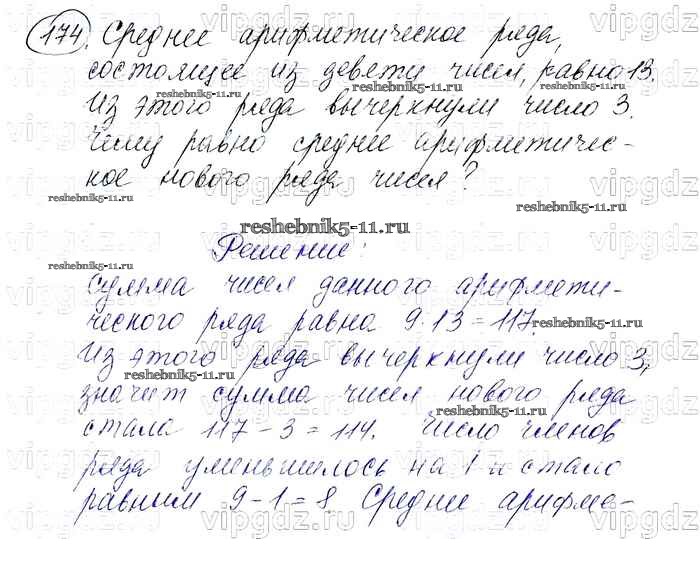 174. Среднее арифметическое ряда,
состоящее из девяти чисел, равно 13.
Из этого ряда вычеркнули число 3.
Чему равно среднее арифметичес-
кое нового ряда чисел?
Решение:
Сумма чисел данного арифмети-
ческого ряда равна 9·13=117.
Из этого ряда вычеркнули число 3,
значит сумма чисел нового ряда
стала 117-3=114. Число членов
ряда уменьшилось на 1 и стало
равним 9-1=8. Среднее арифме-
vipgdz.ru
reshebnik5-11.ru